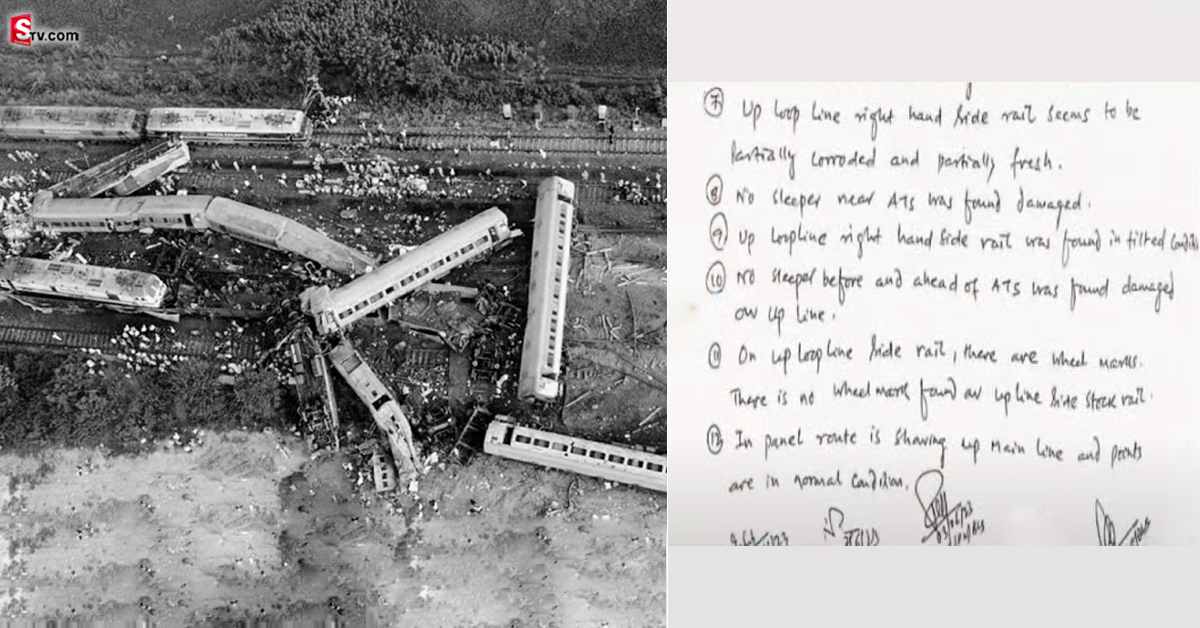 STV.com
7 Up loop line right hand side rail seems to be
partially corroded and partially fresh.
8 No sleeper near ATS was found damaged.
9 Up loopline right hand side rail was found in tilted
10 No sleeper before and ahead of ATS was found damaged
on up line.
11 On up loop line side rail, there are wheel marks.
There is no wheel mark found on up line side stock rail.
12 In panel route is showing up main line and points
are in normal condition.